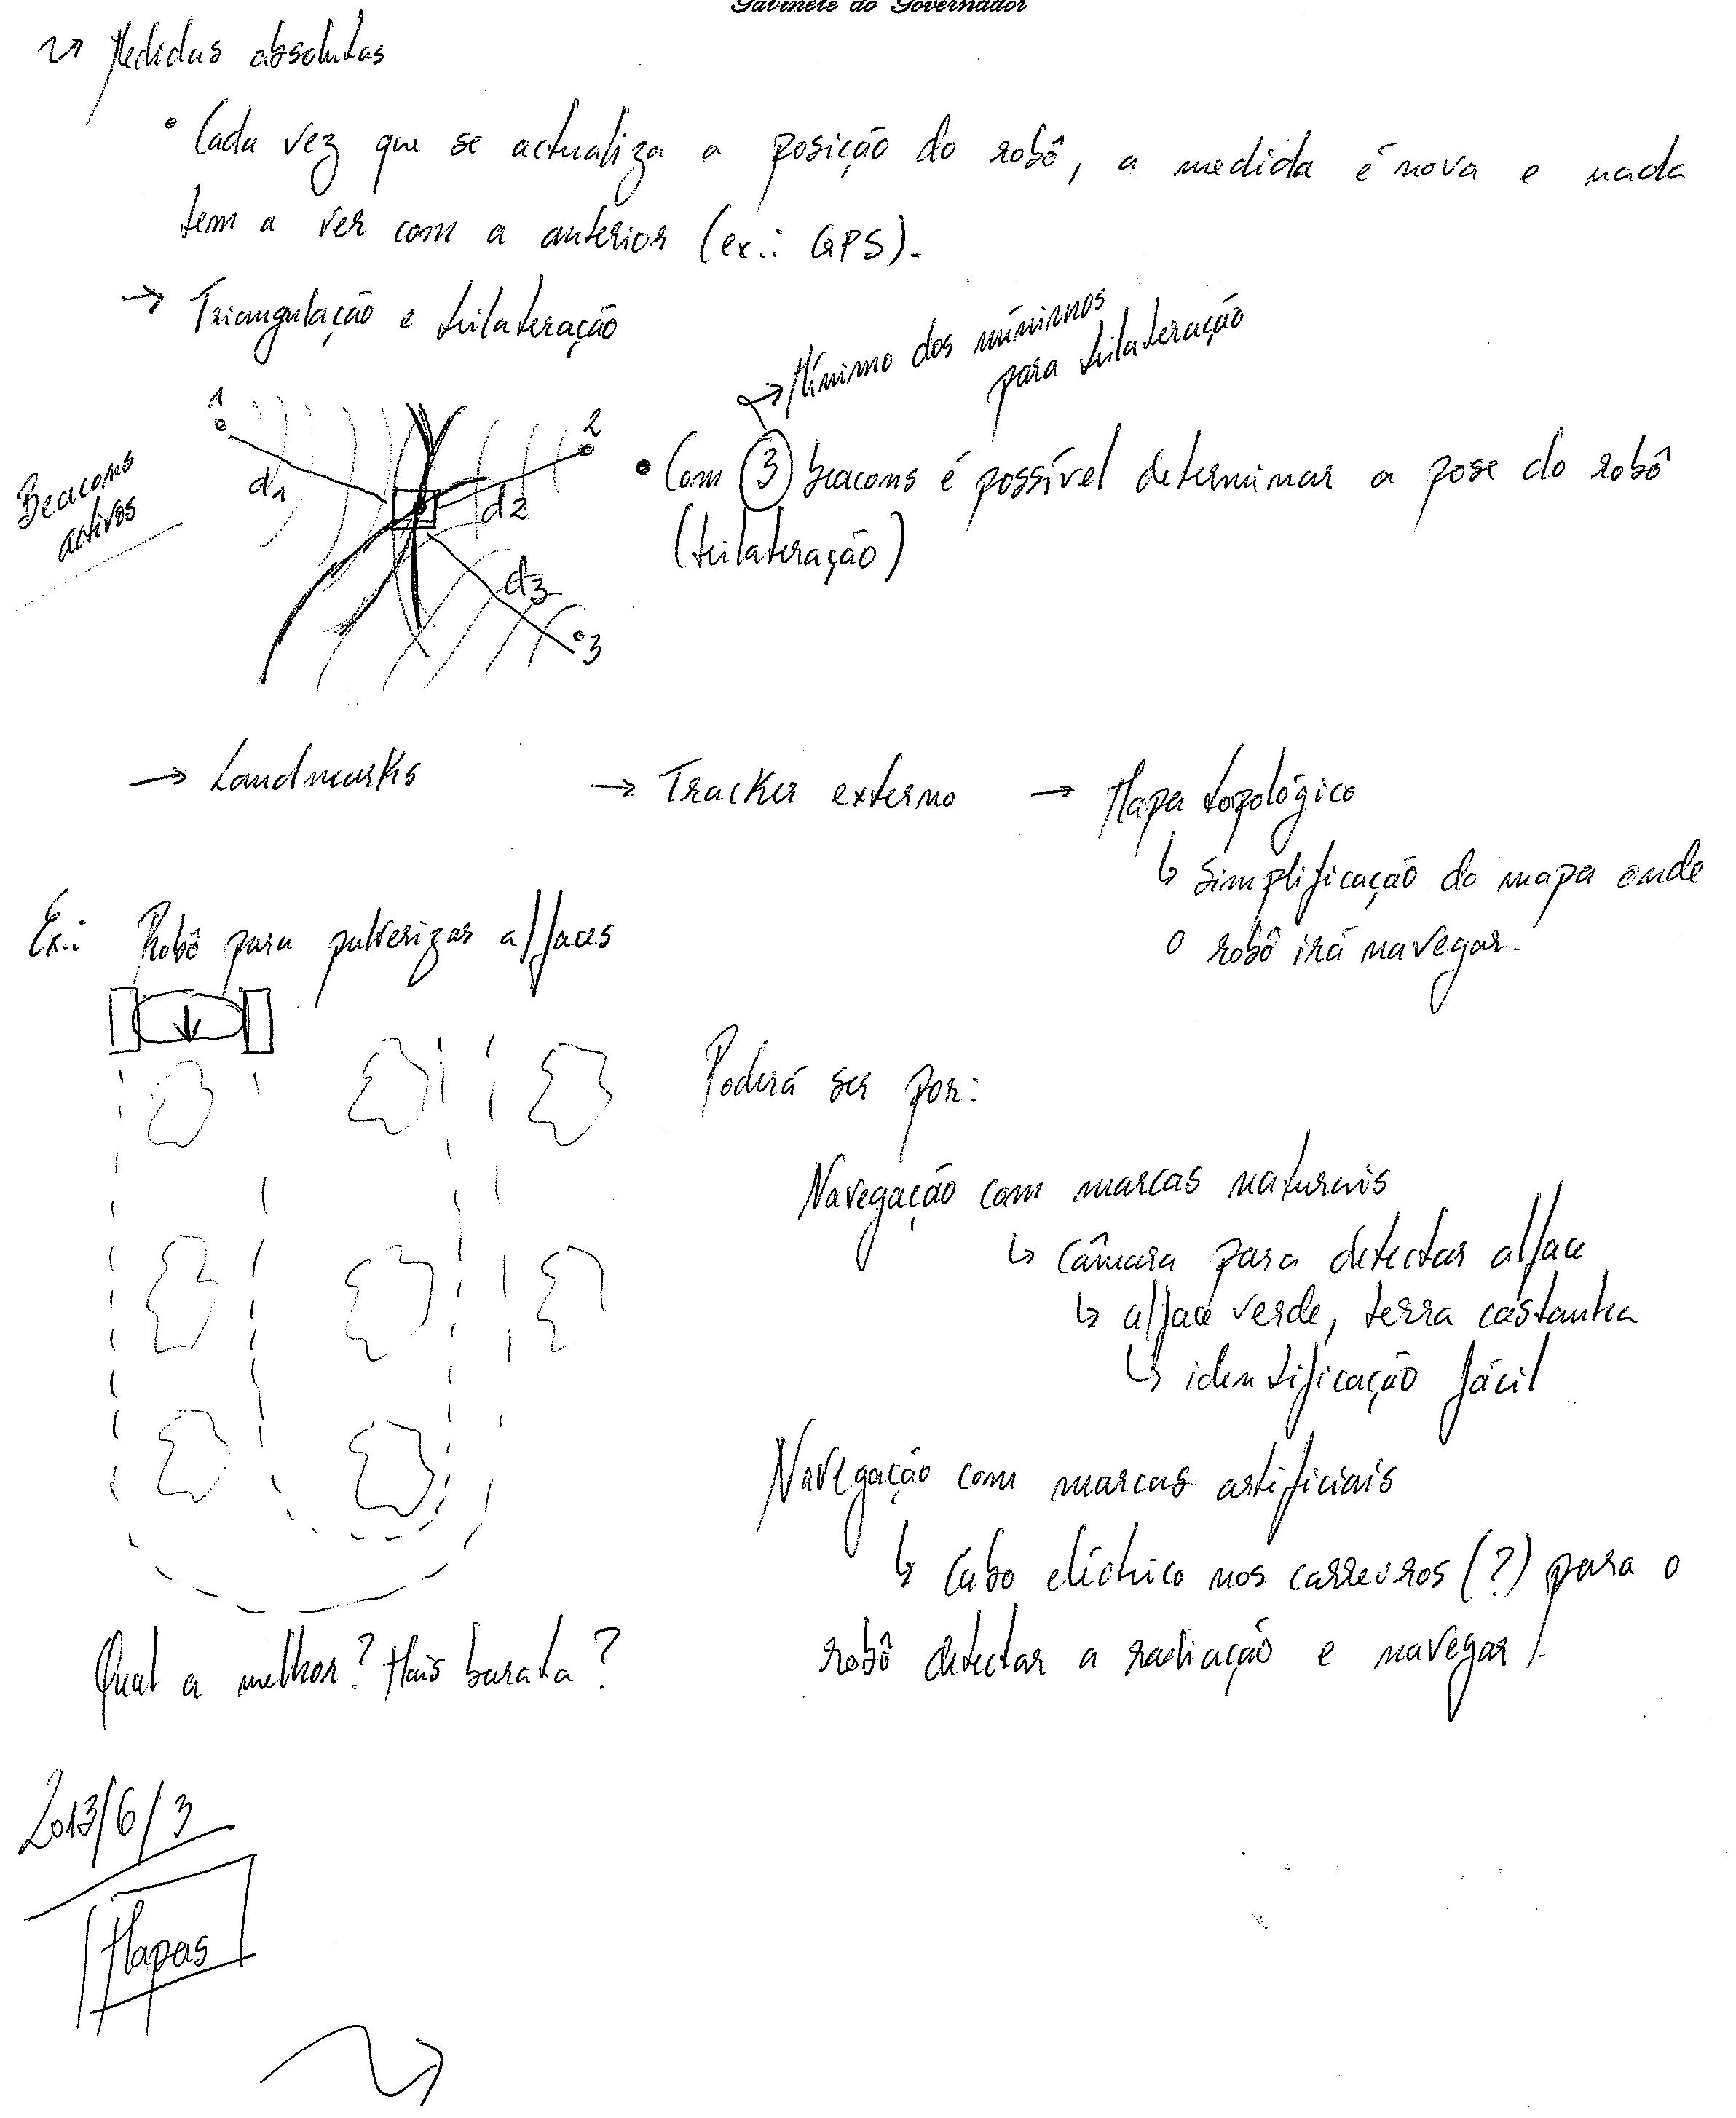 Gabinete do Governador
Medidas absolutas
• Cada vez que se actualiza a posição do robô, a medida é nova e nada
tem a ver com a anterior (ex.: GPS).
→ Triangulação e trilateração
→ Mínimo dos mínimos
para trilateração
1
2
Beacons
activos
d1
d2
d3
3
• Com 3 beacons é possível determinar a pose do robô
(trilateração)
→ Landmarks → Tracker externo → Mapa topológico
↳ Simplificação do mapa onde
o robô irá navegar.
Ex.: Robô para pulverizar alfaces
Poderá ser por:
Navegação com marcas naturais
↳ câmara para detectar alface
↳ alface verde, terra castanha
↳ identificação fácil
Navegação com marcas artificiais
↳ Cabo eléctrico nos carreiros (?) para o
robô detectar a radiação e navegar!
Qual a melhor? Mais barata?
2013/6/3
Mapas